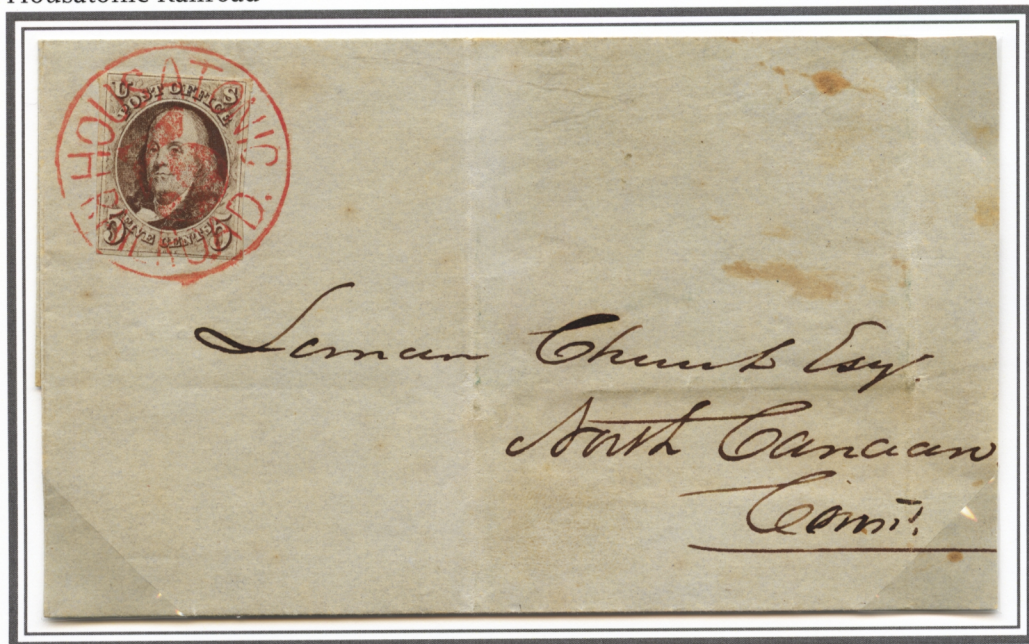 Housatonic Railroad
HOUSATONIC
RAILROAD.
U S
POST OFFICE
FIVE CENTS
5 5
Church Esq.
North Canaan
Conn.